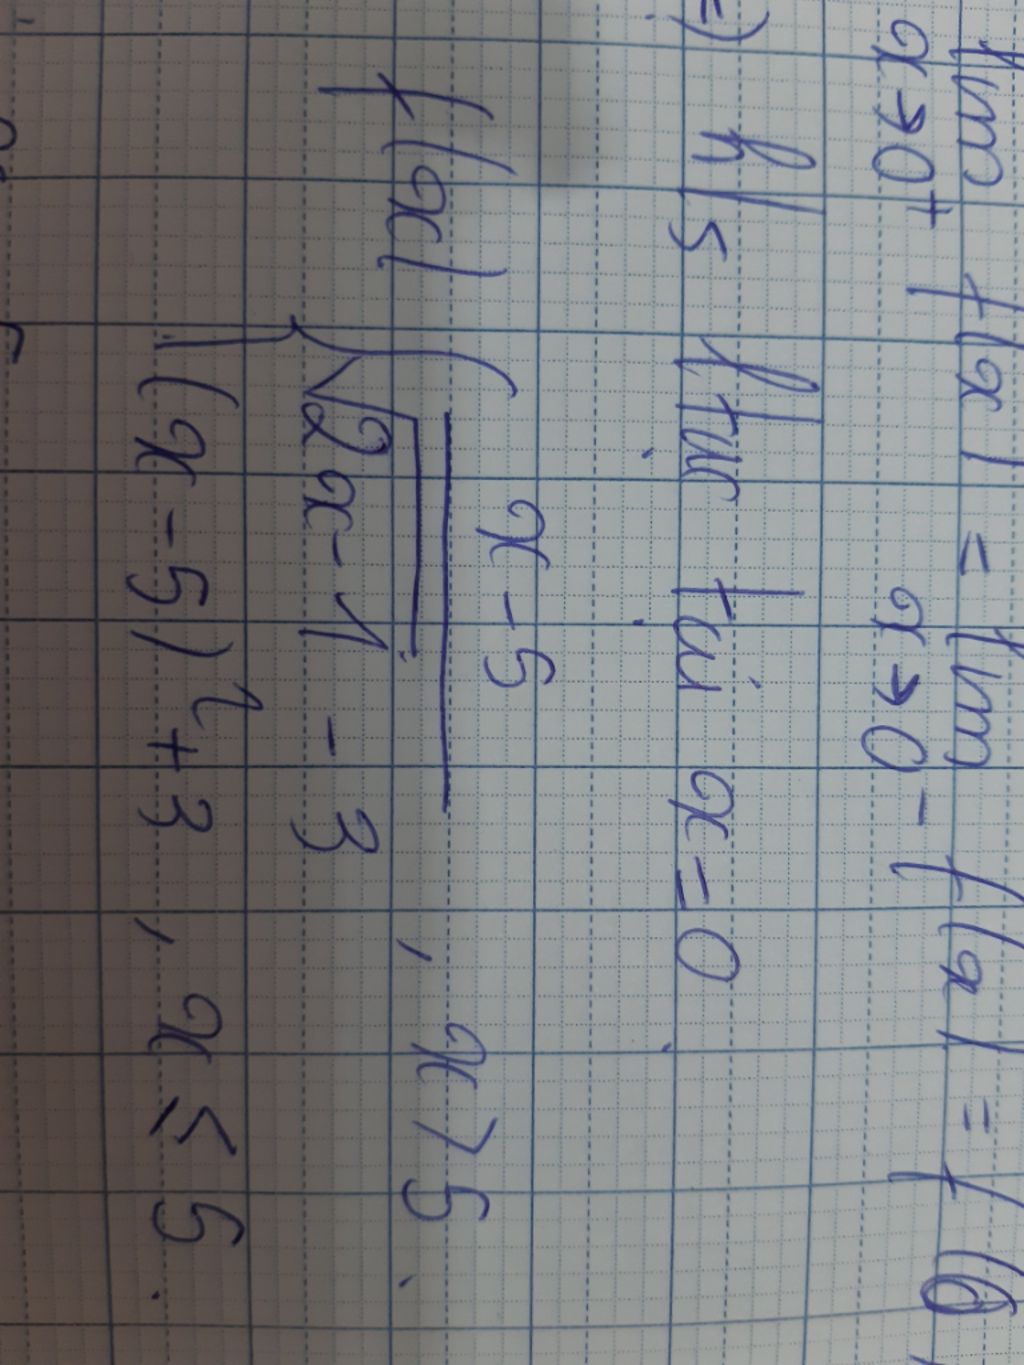 lim f(x) = lim f(x) = f(0
x→0+ x→0-
=) h/s ltục tại x=0
f(x) { x-5
√2x-1 - 3 , x>5
(x-5)² + 3 , x≤5